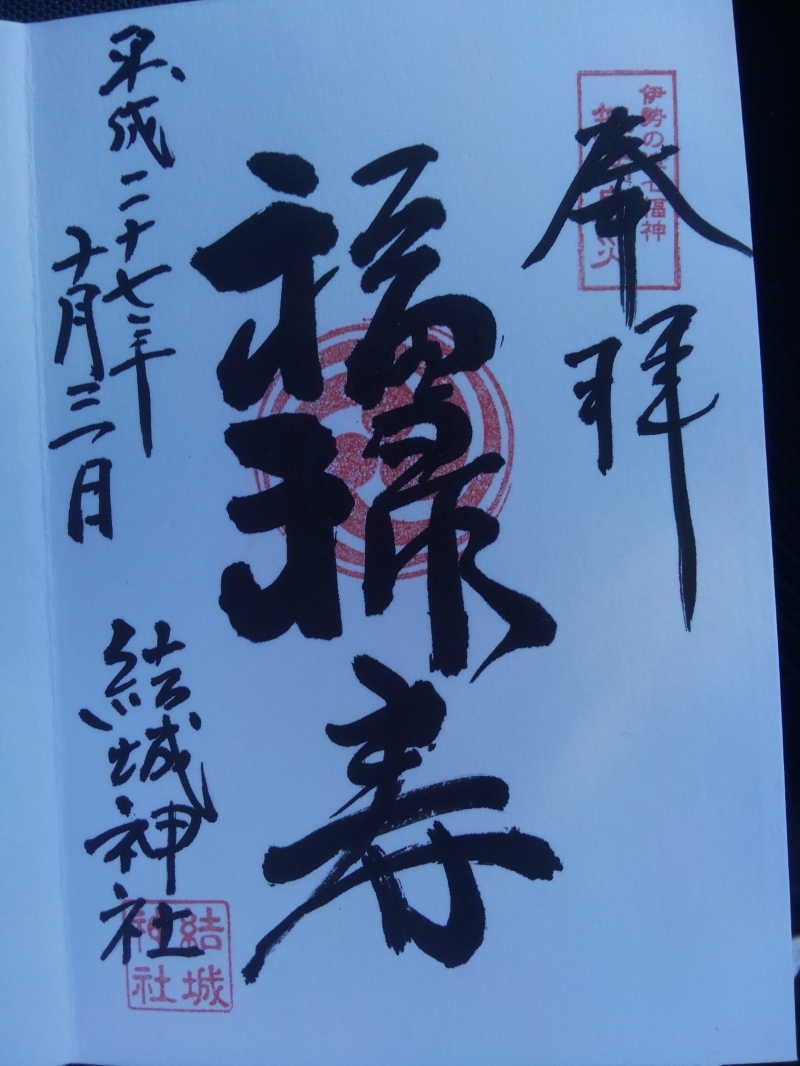 奉拝
伊勢の
七福神
福禄寿
平成二十七年
十月三日
結城神社
結城
神社